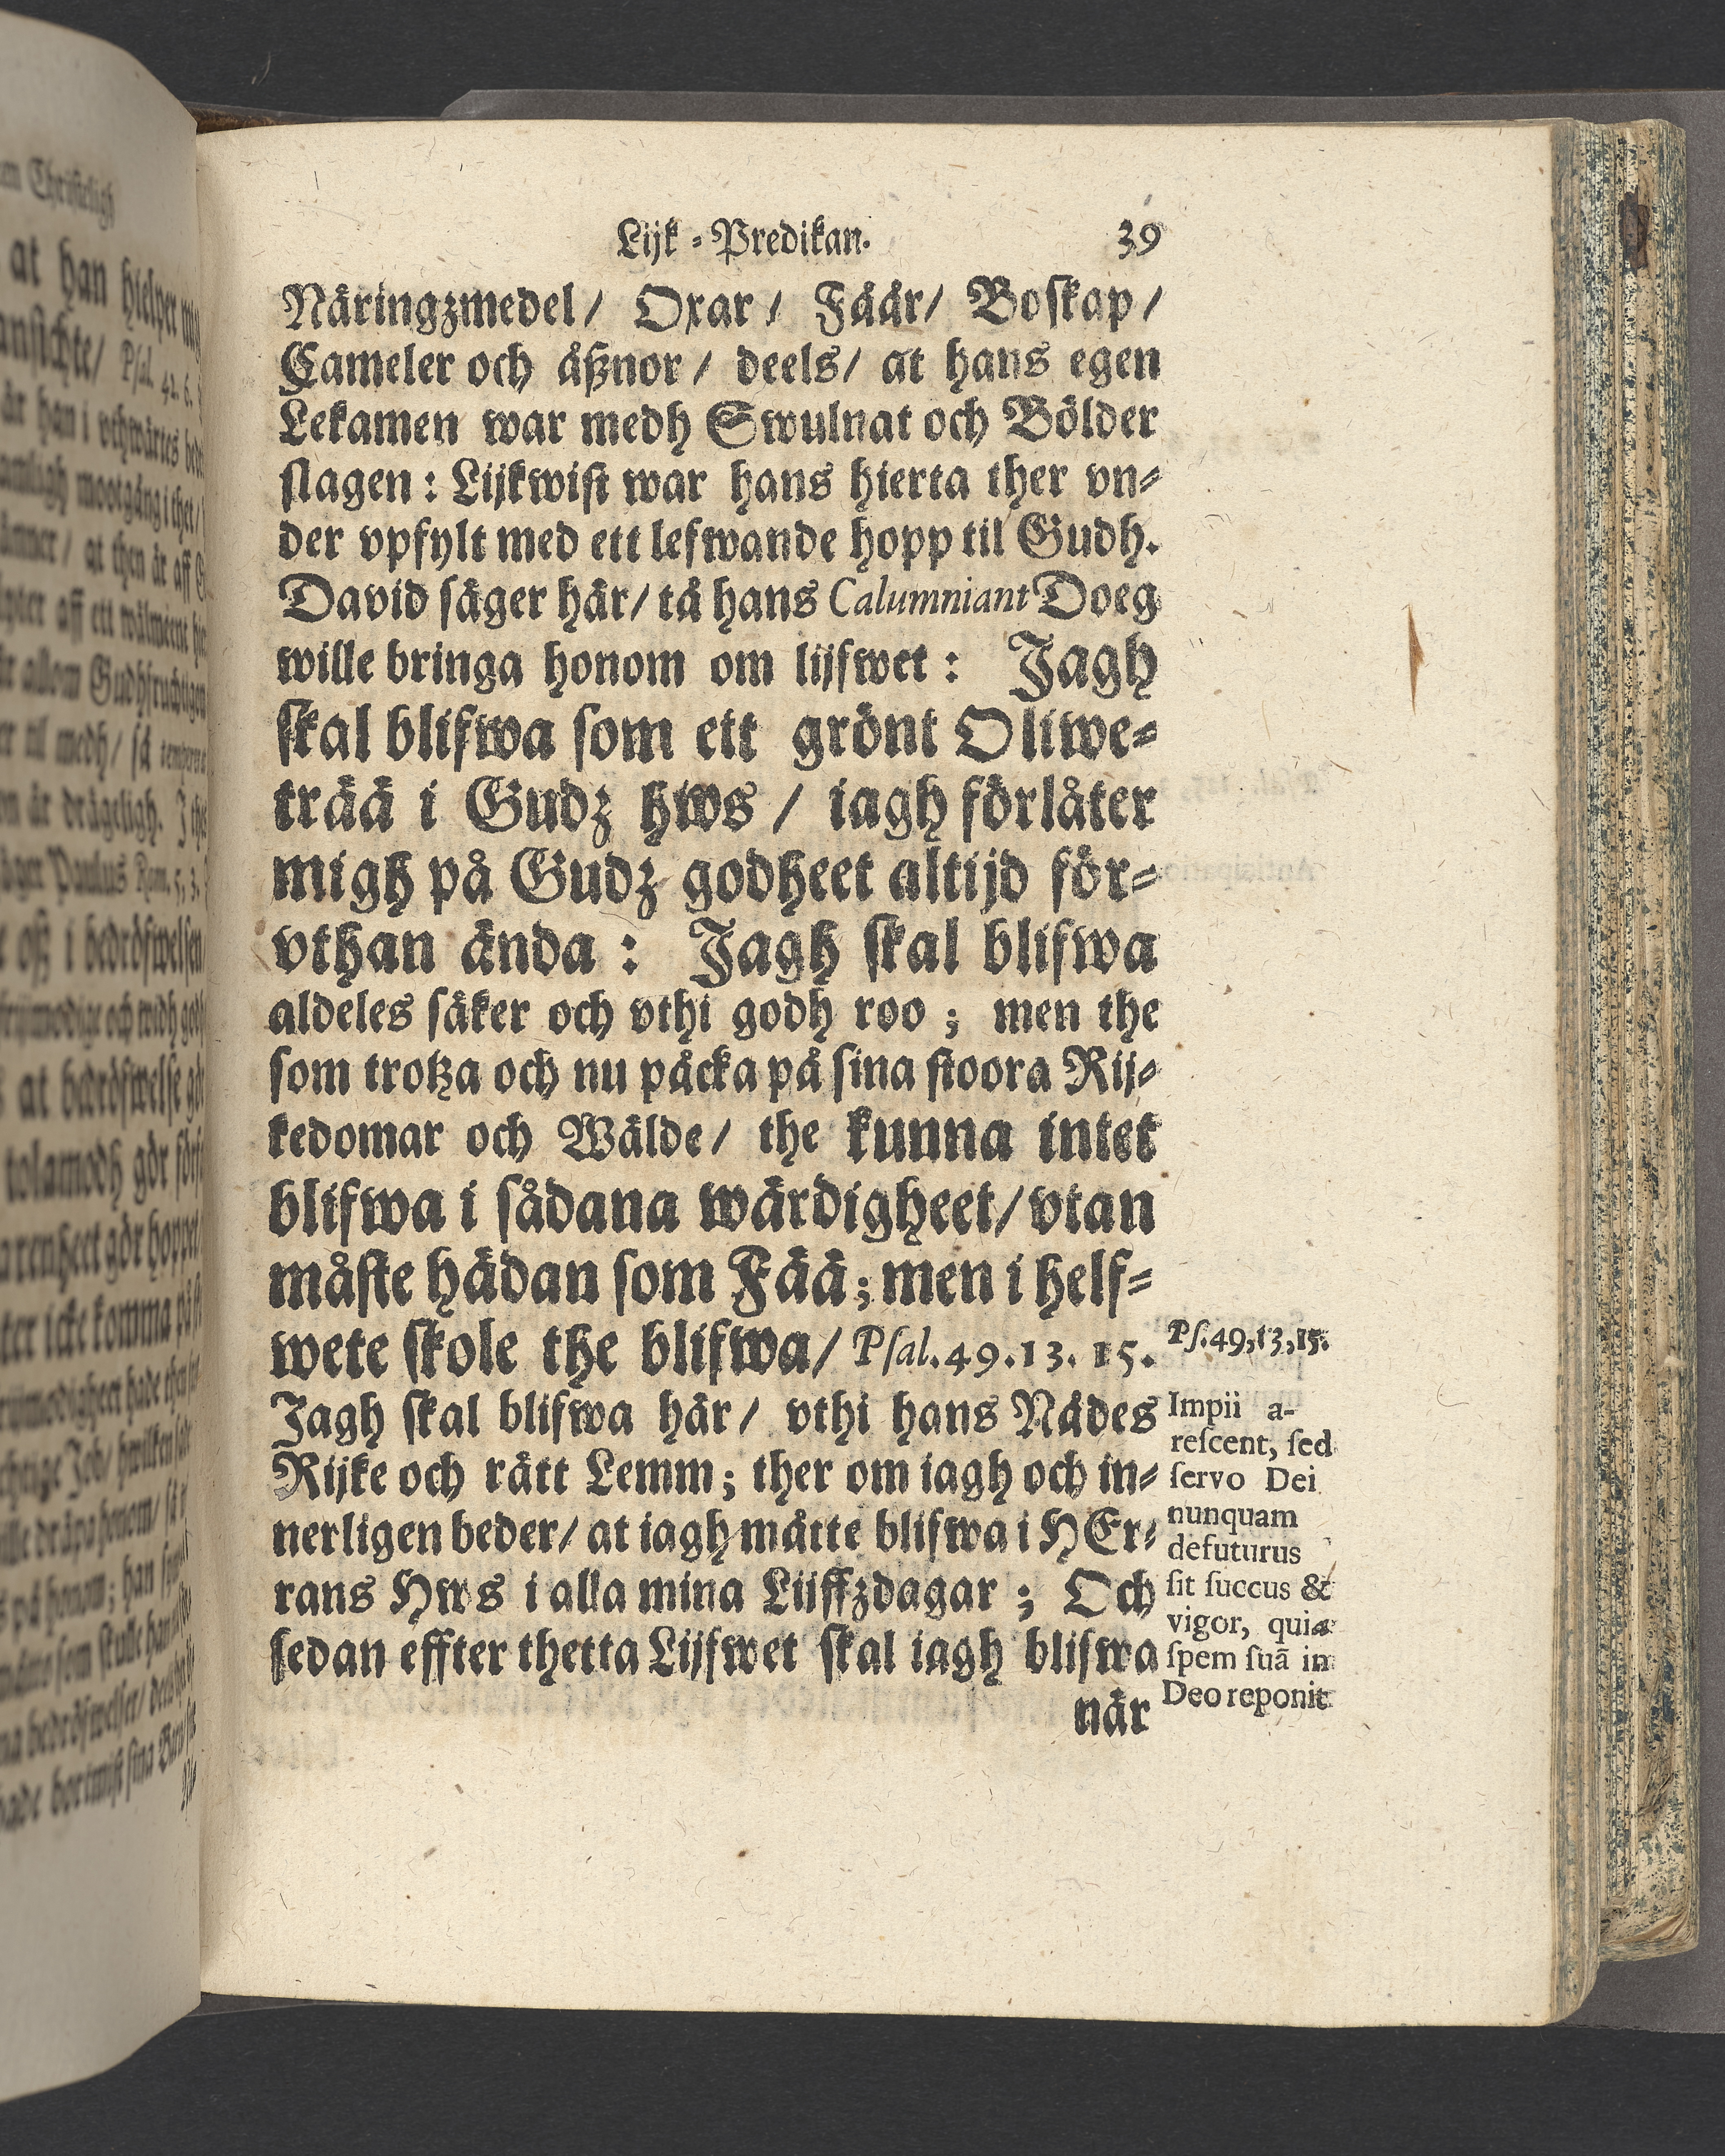 Lijk-Predikan. 39
Näringzmedel/ Oxar/ Fäår/ Boſkap/
Cameler och åßnor/ deels/ at hans egen
Lekamen war medh Swulnat och Bölder
ſlagen: Lijkwiſt war hans hierta ther vn-
der vpfylt med ett lefwande hopp til Gudh.
David ſäger här/ tå hans Calumniant Doeg
wille bringa honom om lijfwet: Jagh
ſkal blifwa ſom ett grönt Oliwe-
trää i Gudz hws/ iagh förlåter
migh på Gudz godheet altijd för-
vthan ända: Jagh ſkal blifwa
aldeles ſäker och vthi godh roo; men the
ſom trotza och nu påcka på ſina ſtoora Rij-
kedomar och Wälde/ the kunna intet
blifwa i ſådana wärdigheet/ vtan
måſte hädan ſom Fää; men i helf-
wete ſkole the blifwa/ Pſal. 49. 13. 15.
Jagh ſkal blifwa här/ vthi hans Nådes
Rijke och rätt Lemm; ther om iagh och in-
nerligen beder/ at iagh måtte blifwa i HEr-
rans Hws i alla mina Lijffzdagar; Och
ſedan effter thetta Lijfwet ſkal iagh blifwa
när
Pſ. 49, 13, 15.
Impii a-
reſcent, ſed
ſervo Dei
nunquam
defuturus
ſit ſuccus &
vigor, quia
ſpem ſuã in
Deo reponit